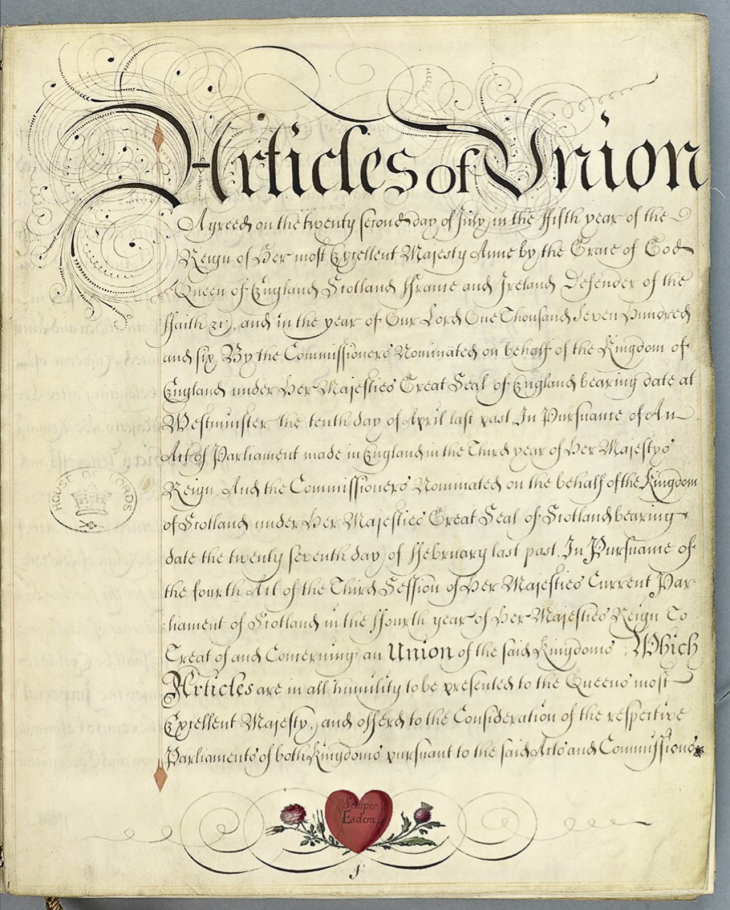 Articles of Union
Agreed on the twenty second day of July in the ffifth year of the
Reign of Her most Excellent Majesty Anne by the Grace of God
Queen of England Scotland ffrance and Ireland Defender of the
ffaith &c, and in the year of Our Lord One Thousand Seven Hundred
and six By the Commissioners Nominated on behalf of the Kingdom of
England under Her Majesties Great Seal of England bearing date at
Westminster the tenth day of April last past In Pursuance of An
Act of Parliament made in England in the Third year of Her Majestys
Reign And the Commissioners Nominated on the behalf of the Kingdom
of Scotland under Her Majesties Great Seal of Scotland bearing
date the twenty seventh day of ffebruary last past In Pursuance of
the fourth Act of the Third Session of Her Majesties Current Par-
liament of Scotland in the ffourth year of Her Majesties Reign To
Treat of and Concerning an Union of the said Kingdoms Which
Articles are in all humility to be presented to the Queens most
Excellent Majesty, and offerd to the Consideration of the respective
Parliaments of both Kingdoms pursuant to the said Acts and Commissions
HOUSE OF LORDS
Semper
Eadem